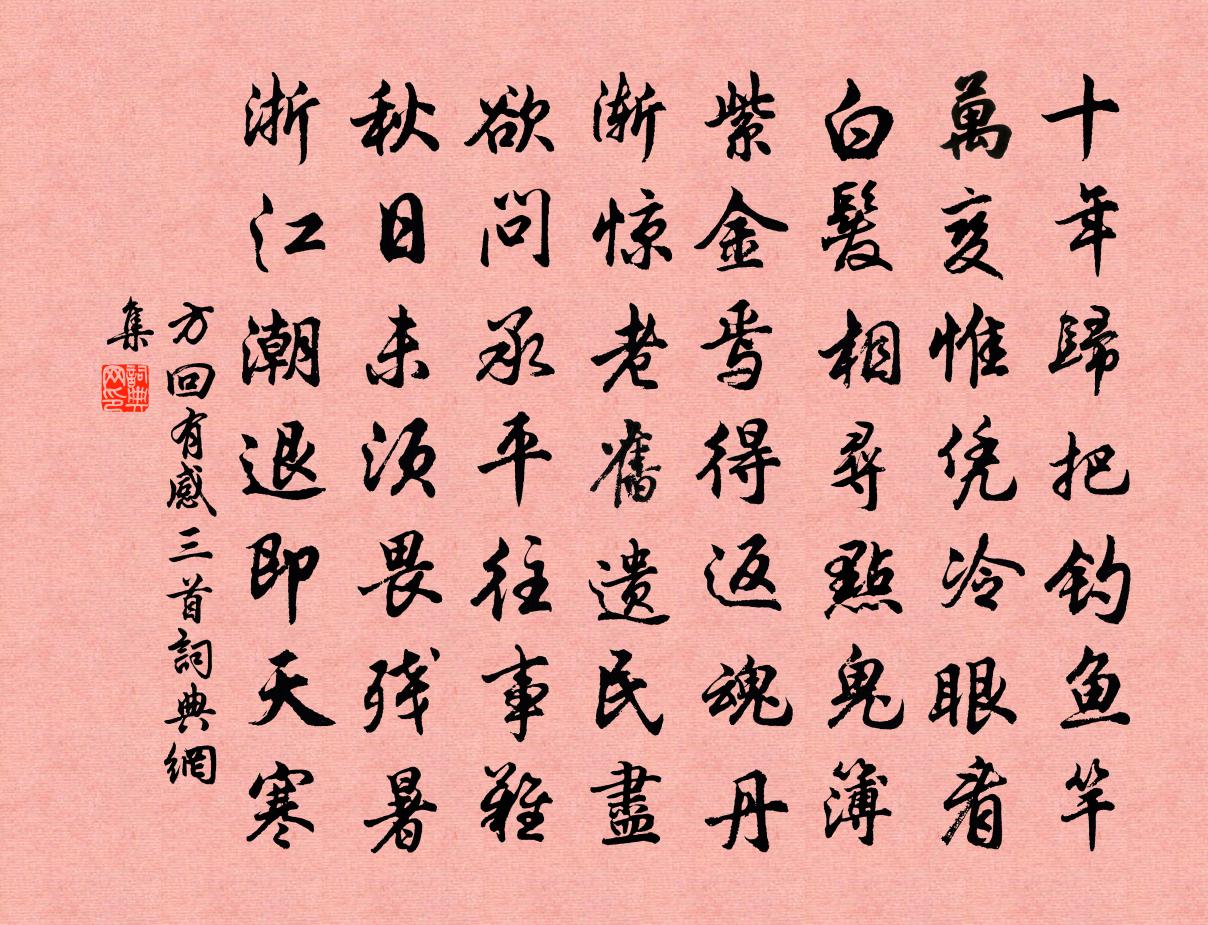 十年歸把钓鱼竿
萬变惟凭冷眼看
白髮相尋點鬼簿
紫金焉得返魂丹
渐惊老舊遗民盡
欲问承平往事難
秋日未须畏残暑
浙江潮退即天寒
方回有感三首詞典網
集
詞典网印